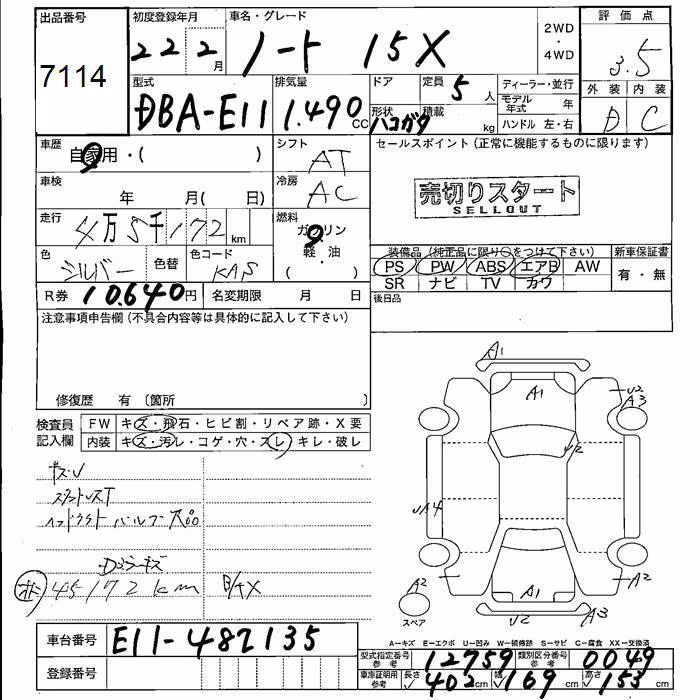 出品番号 初度登録年月 車名・グレード 2WD・4WD 評価点
7114 22年2月 ノート 15X 3.5
型式 排気量 ドア 定員 5人 ディーラー・並行 外装 内装
DBA-E11 1.490CC 形状 積載 kg モデル年式 年 D C
ハコガタ ハンドル 左・右
車歴 自家用・( ) シフト AT セールスポイント(正常に機能するものに限ります)
車検 年 月( 日) 冷房 AC 売切りスタート
SELLOUT
走行 4万5千172km 燃料 ガソリン
軽・油
( ・ )
色 シルバー 色替 色コード KAS
装備品(純正品に限り○をつけて下さい) 新車保証書
PS PW ABS エアB AW 有・無
SR ナビ TV カワ
R券 10.640円 名変期限 月 日 後日品
注意事項申告欄(不具合内容等は具体的に記入して下さい)
修復歴 有 〔箇所
検査員記入欄 FW キズ・飛石・ヒビ割・リペア跡・X要
内装 キズ・汚レ・コゲ・穴・スレ・キレ・破レ
キズ・U
45172km
A1
A1
U2
A3
U2
UA4
A2
A2
スペア
A1
U2
A3
車台番号 E11-482135
登録番号
A−キズ E−エクボ U−凹み W−補修跡 S−サビ C−腐食 XX−交換済
型式指定番号 参考 12759 類別区分番号 参考 0049
車庫証明用 参考 長さ 402cm 幅 169cm 高さ 153cm